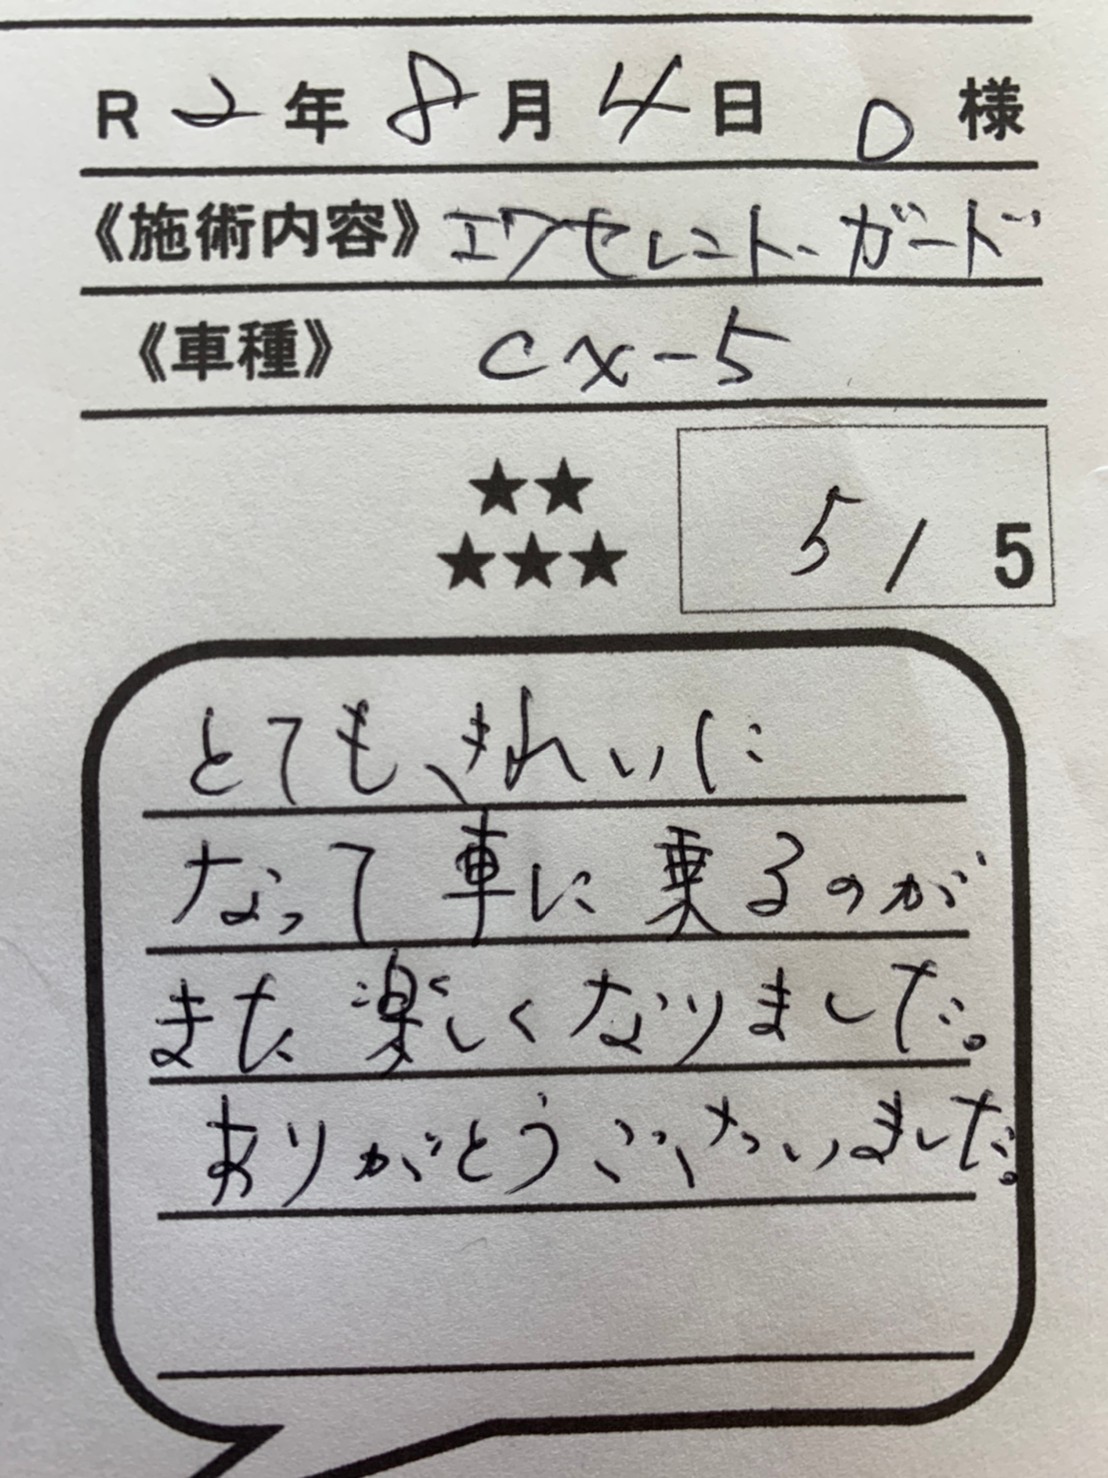 R 2 年 8 月 4 日 O 様
《施術内容》エクセレント・ガード
《車種》 CX-5
★★
★★★
5 / 5
とても、きれいに
なって車に乗るのが
また楽しくなりました。
ありがとうございました。